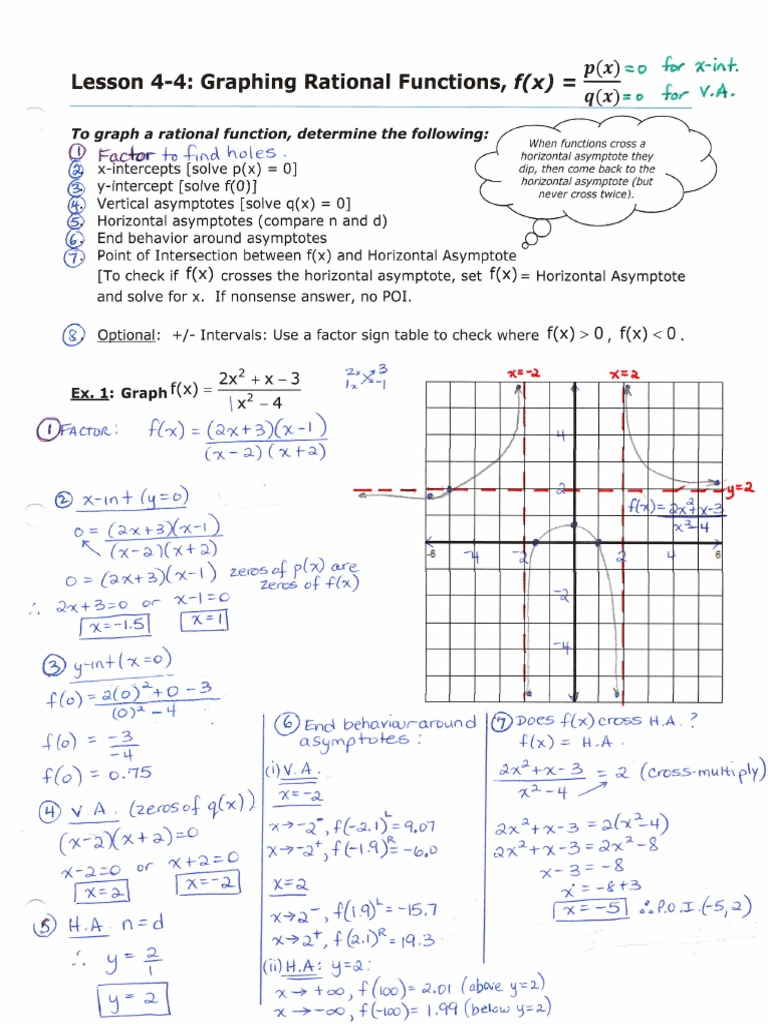 Lesson 4-4: Graphing Rational Functions, f(x) = p(x)/q(x) =0 for x-int. =0 for V.A.
To graph a rational function, determine the following:
① Factor to find holes.
② x-intercepts [solve p(x) = 0]
③ y-intercept [solve f(0)]
④ Vertical asymptotes [solve q(x) = 0]
⑤ Horizontal asymptotes (compare n and d)
⑥ End behavior around asymptotes
⑦ Point of Intersection between f(x) and Horizontal Asymptote
[To check if f(x) crosses the horizontal asymptote, set f(x) = Horizontal Asymptote
and solve for x. If nonsense answer, no POI.
When functions cross a
horizontal asymptote they
dip, then come back to the
horizontal asymptote (but
never cross twice).
⑧ Optional: +/- Intervals: Use a factor sign table to check where f(x) > 0 , f(x) < 0 .
Ex. 1: Graph f(x) = (2x² + x − 3)/(1x² − 4)
2x 3
1x -1
① FACTOR: f(x) = (2x+3)(x-1)/(x-2)(x+2)
② x-int (y=0)
0 = (2x+3)(x-1)/(x-2)(x+2)
0 = (2x+3)(x-1) zeros of p(x) are
zeros of f(x)
∴ 2x+3=0 or x-1=0
x=-1.5 x=1
③ y-int (x=0)
f(0) = 2(0)²+0-3/(0)²-4
f(0) = -3/-4
f(0) = 0.75
④ V.A. (zeros of q(x))
(x-2)(x+2)=0
x-2=0 or x+2=0
x=2 x=-2
⑤ H.A. n=d
∴ y = 2/1
y = 2
x=-2 x=2
4
2 y=2
f(x)=2x²+x-3/x²-4
-6 -4 -2 2 4 6
-2
-4
⑥ End behaviour around
asymptotes:
(i) V.A.
x=-2
x→-2⁻, f(-2.1)ᴸ=9.07
x→-2⁺, f(-1.9)ᴿ=-6.0
x=2
x→2⁻, f(1.9)ᴸ=-15.7
x→2⁺, f(2.1)ᴿ=19.3
(ii) H.A: y=2:
x→+∞, f(100)=2.01 (above y=2)
x→-∞, f(-100)=1.99 (below y=2)
⑦ Does f(x) cross H.A.?
f(x) = H.A.
2x²+x-3/x²-4 = 2 (cross-multiply)
2x²+x-3=2(x²-4)
2x²+x-3=2x²-8
x-3=-8
x=-8+3
x=-5 ∴P.O.I.(-5,2)